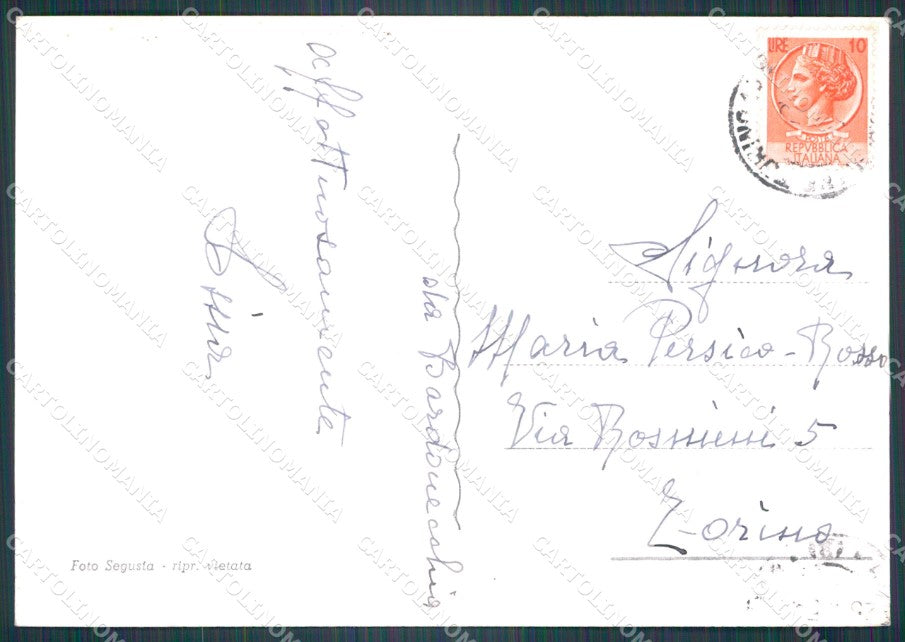 affettuosamente
Lina
da Bardonecchia
LIRE 10
POSTE
REPVBBLICA
ITALIANA
Signora
Maria Persico-Rosso
Via Rosmini 5
Torino
Foto Segusta - ripr. vietata
CARTOLINOMANIA